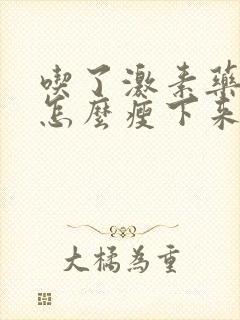 喫了激素藥
怎麼瘦下來
大橘為重